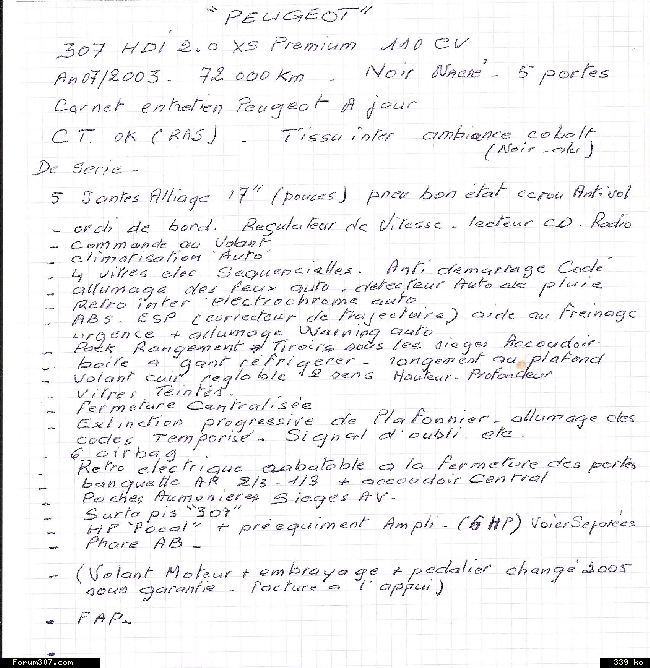 "PEUGEOT"
307 HDI 2.0 XS Premium 110 CV
An 07/2003 - 72 000 Km - Noir Nacré - 5 portes
Carnet entretien Peugeot A jour
C.T. OK (RAS) - Tissu inter ambiance cobalt
(Noir - alu)
De serie -
5 Jantes Alliage 17" (pouces) pneu bon état ecrou Antivol
- ordi de bord. Regulateur de Vitesse - lecteur CD. Radio
- Commande au Volant
- climatisation Auto
- 4 vitres elec Sequencielles. Anti demarrage Codé
- allumage des feux auto - detecteur Auto de pluie
- Retro inter electrochrome auto
- ABS - ESP (correcteur de trajectoire) aide au freinage
urgence + allumage Warning auto
- Pack Rangement Tiroirs sous les sieges Accoudoir
- boite a gant réfrigerer - rangement au plafond
- Volant cuir reglable 2 sens Hauteur - Profondeur
- Vitres Teintés.
- Fermeture Centralisée
- Extinction progressive de Plafonnier - allumage des
codes Temporisé - Signal d'oubli etc.
- 6 airbag
- Retro electrique rabatable a la fermeture des portes
- banquette AR 2/3 - 1/3 + accoudoir Central
- Poches Aumonieres Sieges AV -
- Surtapis "307"
- HP "Focal" + prééquiment Ampli - (6 HP) Voies Separées
- Phare AB -
- (Volant Moteur + embrayage + pedalier changé 2005
sous garantie - facture a l'appui)
- FAP -
-
Forum307.com
339 ko